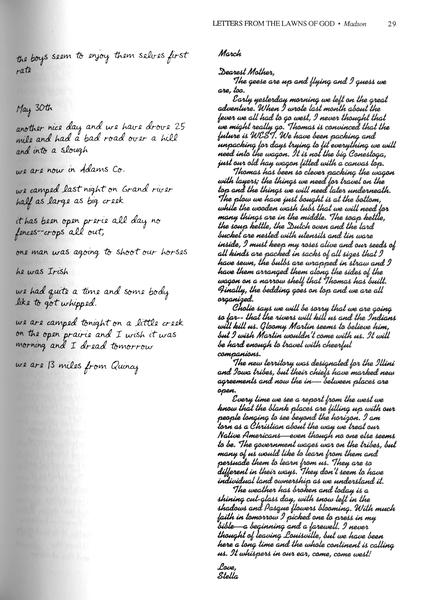 LETTERS FROM THE LAWNS OF GOD • Madson 29
the boys seem to enjoy them selves first
rate
May 30th
another nice day and we have drove 25
mile and had a bad road over a hill
and into a slough
we are now in Adams Co.
we camped last night on Grand river
half as large as big creek
it has been open prerie all day no
fences--crops all out,
one man was agoing to shoot our horses
he was Irish
we had quite a time and some body
like to got whipped.
we are camped tonight on a little creek
on the open prairie and I wish it was
morning and I dread tomorrow
we are 13 miles from Quinay
March
Dearest Mother,
The geese are up and flying and I guess we
are, too.
Early yesterday morning we left on the great
adventure. When I wrote last month about the
fever we all had to go west, I never thought that
we might really go. Thomas is convinced that the
future is WEST. We have been packing and
unpacking for days trying to fit everything we will
need into the wagon. It is not the big Conestoga,
just our old hay wagon fitted with a canvas top.
Thomas has been so clever packing the wagon
with layers; the things we need for travel on the
top and the things we will need later underneath.
The plow we have just bought is at the bottom,
while the wooden wash tubs that we will need for
many things are in the middle. The soap kettle,
the soup kettle, the Dutch oven and the lard
bucket are nested with utensils and tin ware
inside, I must keep my roses alive and our seeds of
all kinds are packed in sacks of all sizes that I
have sewn, the bulbs are wrapped in straw and I
have them arranged along the sides of the
wagon on a narrow shelf that Thomas has built.
Finally, the bedding goes on top and we are all
organized.
Chotie says we will be sorry that we are going
so far-- that the rivers will kill us and the Indians
will kill us. Gloomy Martin seems to believe him,
but I wish Martin wouldn't come with us. It will
be hard enough to travel with cheerful
companions.
The new territory was designated for the Illini
and Iowa tribes, but their chiefs have marked new
agreements and now the in— between places are
open.
Every time we see a report from the west we
know that the blank places are filling up with our
people longing to see beyond the horizon. I am
torn as a Christian about the way we treat our
Native Americans—even though no one else seems
to be. The government wages war on the tribes, but
many of us would like to learn from them and
persuade them to learn from us. They are so
different in their ways. They don't seem to have
individual land ownership as we understand it.
The weather has broken and today is a
shining cut-glass day, with snow left in the
shadows and Pasque flowers blooming. With much
faith in tomorrow I picked one to press in my
bible—a beginning and a farewell. I never
thought of leaving Louisville, but we have been
here a long time and the whole continent is calling
us. It whispers in our ear, come, come west!
Love,
Stella